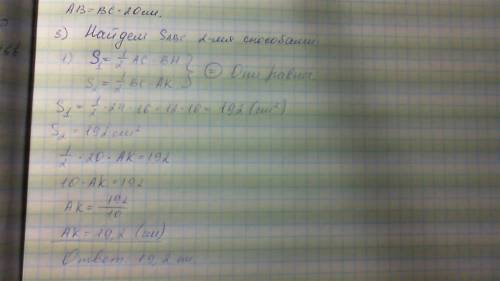 AB=BC=20см.
3) Найдем SABC 2-мя способами
1) S₁ = 1/2 AC · BH } ⊜ Они равны
S₂ = 1/2 BC · AK
S₁ = 1/2 · 24 · 16 = 12 · 16 = 192 (см²)
S₂ = 192 см²
1/2 · 20 · AK = 192
10 · AK = 192
AK = 192/10
AK = 19,2 (см)
Ответ: 19,2 см.